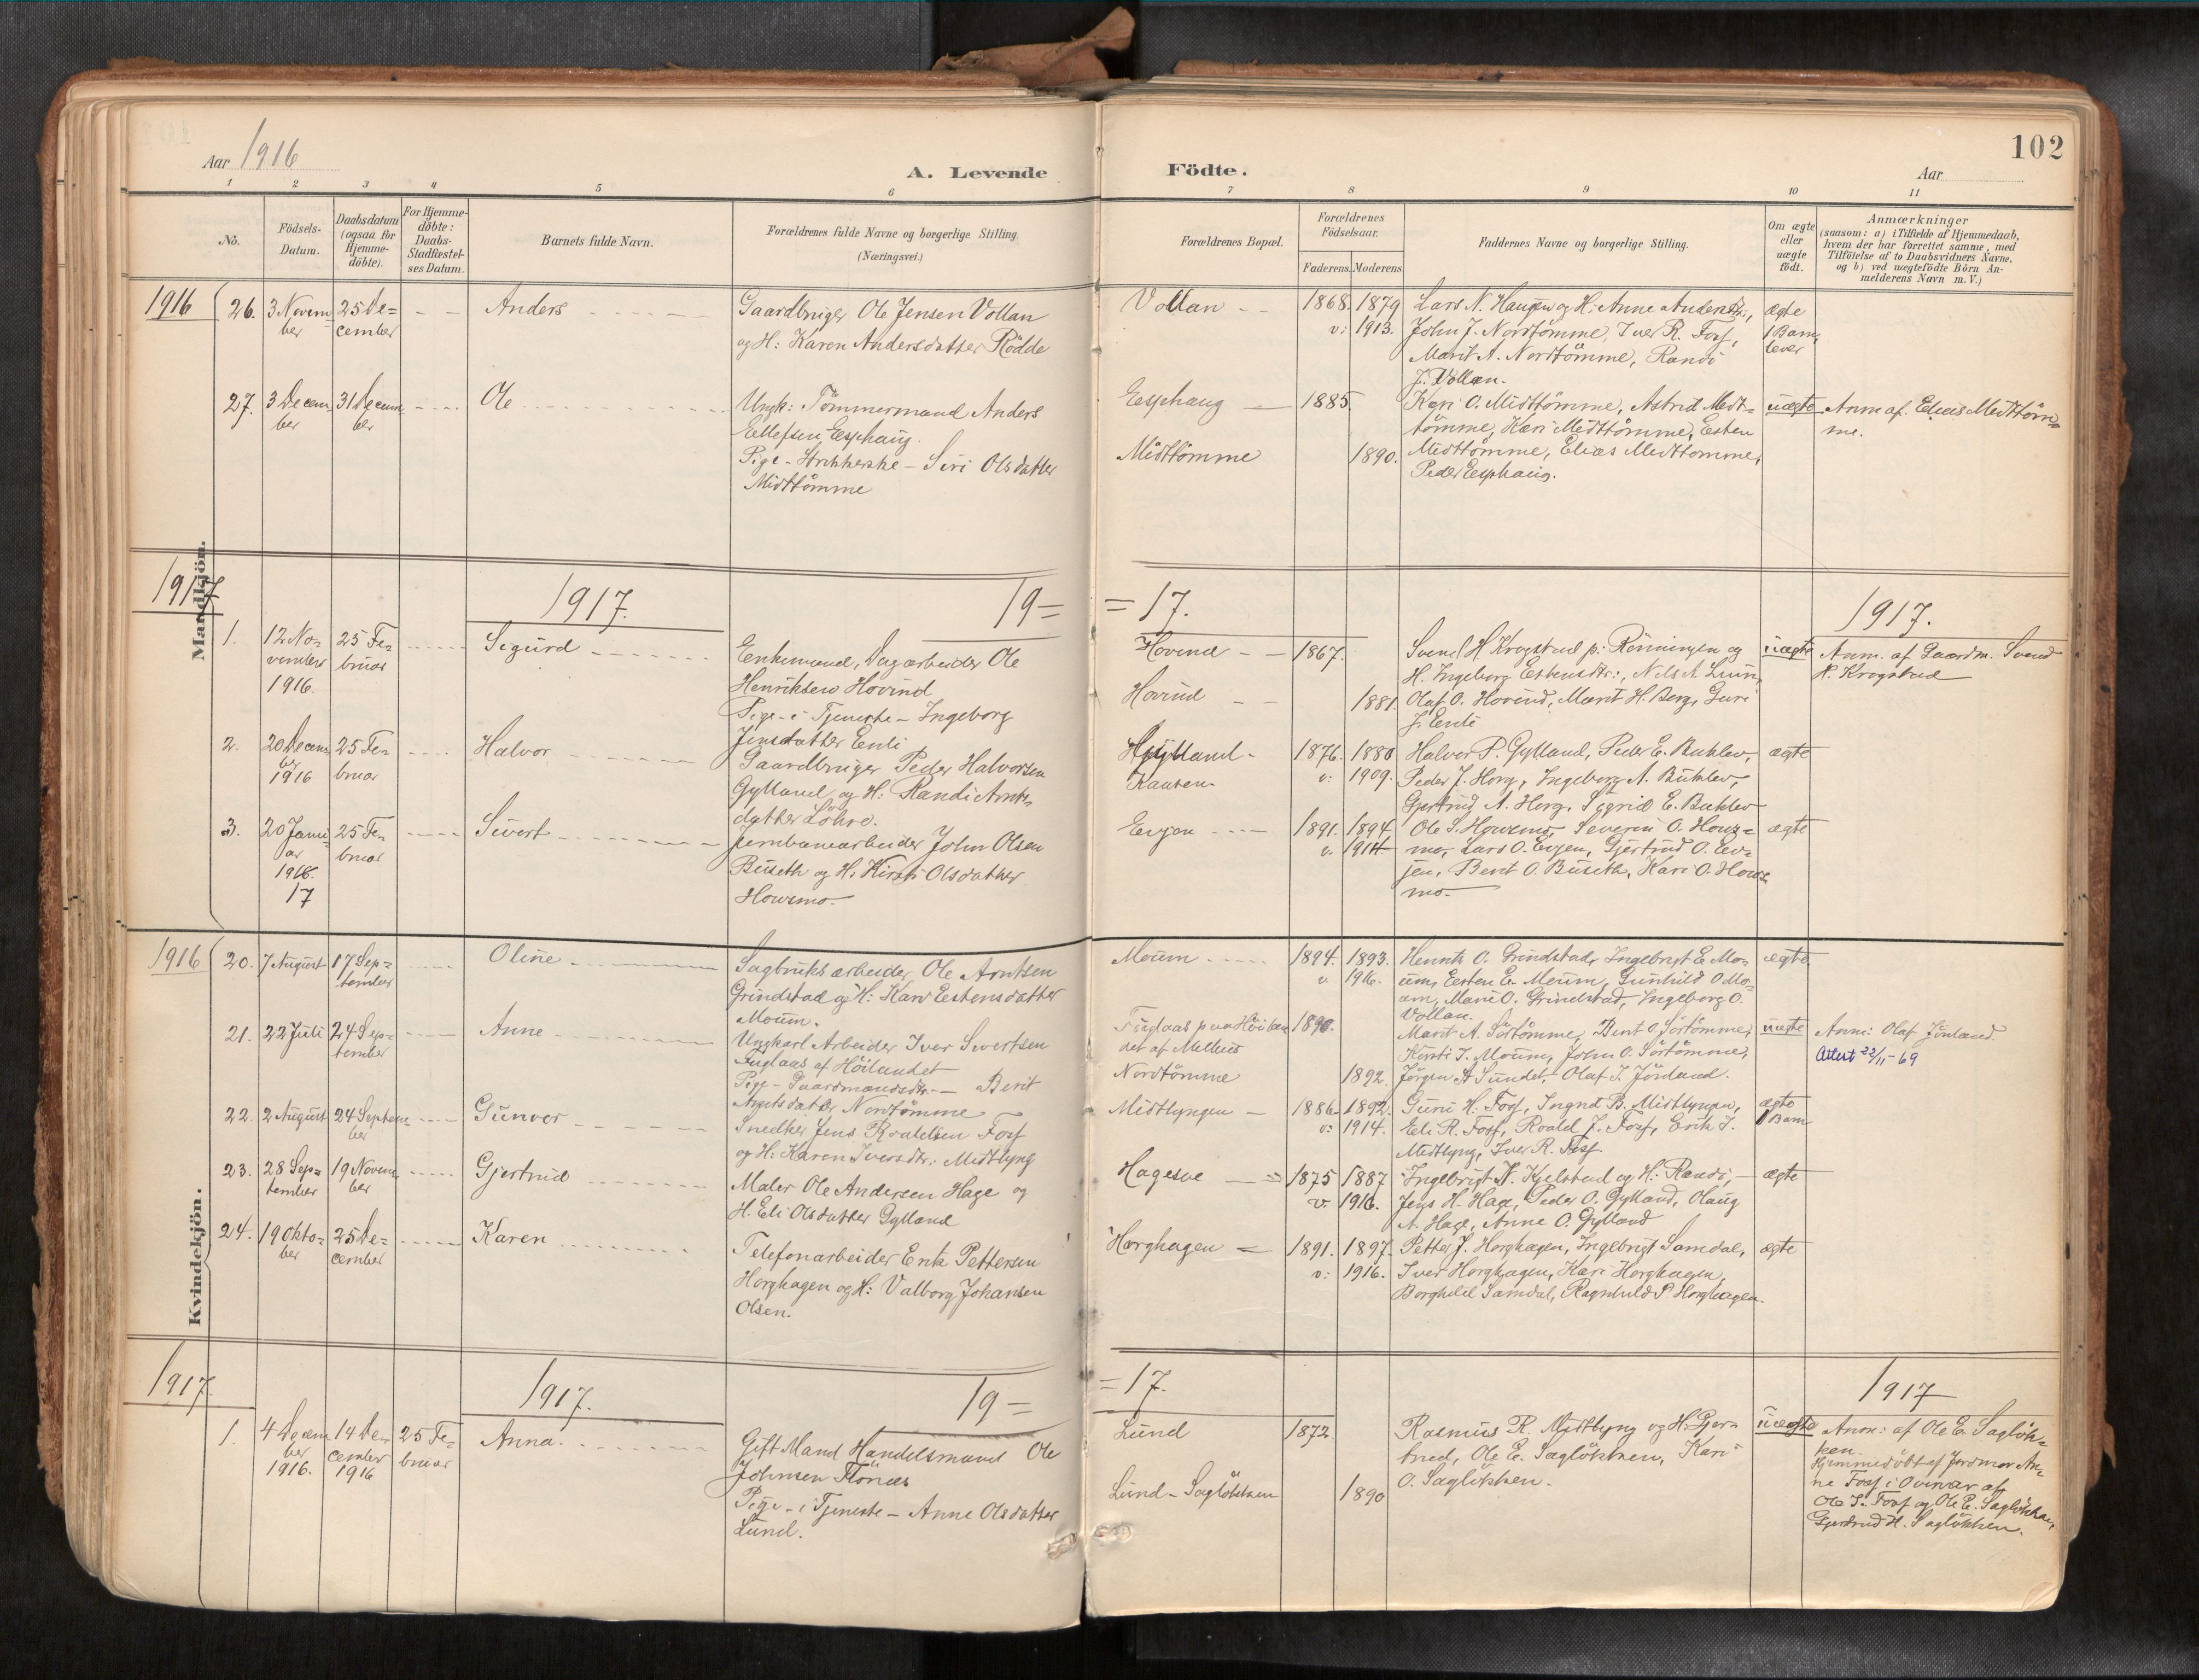 102
Aar 1916
A. Levende Födte.
Aar
1 2 3 4 5 6 7 8 9 10 11
No.
Födsels-
Datum.
Daabsdatum
(ogsaa for
Hjemme-
döbte).
For Hjemme-
döbte:
Daabs-
Stadfæstel-
ses Datum.
Barnets fulde Navn.
Forældrenes fulde Navne og borgerlige Stilling.
(Næringsvei.)
Forældrenes Bopæl.
Forældrenes
Födselsaar.
Faderens. Moderens.
Faddernes Navne og borgerlige Stilling.
Om ægte
eller
uægte
födt.
Anmærkninger
(saasom: a) i Tilfælde af Hjemmedaab,
hvem der har forrettet samme, med
Tilföielse af to Daabsvidners Navne,
og b) ved uægtefödte Börn An-
melderens Navn m. V.)
Mandkjön.
1916
26.
3 Novem
ber
25 De=
cember
Anders
Gaardbruger Ole Jensen Vollan
og H: Karen Andersdatter Rödde
Vollan
1868. 1879
v: 1913.
Lars N. Haugen og H: Anne Andersdtr.,
John J. Nordtömme, Iver R. Foss,
Marit A. Nordtömme, Randi
J. Vollan.
ægte
1 Barn
lever
27.
3 Decem
ber
31 Decem
ber
Ole
Ungk: Tömmermand Anders
Ellefsen Esphaug.
Pige - Strikkerske - Siri Olsdatter
Midttömme
Esphaug
Midttömme
1885.
1890.
Kari O. Midttömme, Astrid Midt-
tömme, Kari Midttömme, Esten
Midttömme, Elias Midttömme,
Peder Esphaug.
uægte
Anm af. Elias Midttöm=
me.
1917
1917.
19=
=17.
1917.
1.
12 No=
vember
1916.
25 Fe=
bruar
Sigurd
Enkemand, Dagarbeider Ole
Henriksen Hovind
Pige - i Tjeneste - Ingeborg
Jensdatter Enli
Hovind
Hovind
1867.
1881.
Svend H. Krogstad p: Rönningen og
H. Ingeborg Estensdtr:, Nils A. Lium,
Olaf O. Hovind, Marit H. Berg, Guri
J. Enli
uægte
Anm. af Gaardm. Svend
H. Krogstad
2.
20 Decem
ber
1916
25 Fe=
bruar
Halvor
Gaardbruger Peder Halvorsen
Gylland og H: Randi Arnts
datter Löhre.
Gylland
1876. 1880
v: 1909.
Halvor P. Gylland, Peder E. Buklev,
Peder J. Horg, Ingeborg A. Buklev,
Gjertrud A. Horg, Sigrid E. Buklev
ægte
3.
20 Janu
ar
1916.
17
25 Fe=
bruar
Sivert
Jernbanearbeider John Olsen
Buseth og H. Kirsti Olsdatter
Howsmo.
Evjen
1891. 1894.
v. 1914
Ole S. Howsmo, Severin O. Hows=
mo, Lars O. Evjen, Gjertrud O. Ev=
jen, Berit O. Buseth, Kari O. Hows
mo
ægte
Kvindekjön.
1916
20.
7 August
17 Sep=
tember
Oline
Sagbruksarbeider Ole Arntsen
Grindstad og H: Kari Estensdatter
Moum.
Moum
1894. 1893.
v. 1916.
Henrik O. Grindstad, Ingebrigt E. Mo=
um, Esten E. Moum, Gunhild O Mo=
um, Marie O. Grindstad, Ingeborg O.
Vollan.
ægte
21.
22 Juli
24 Sep=
tember
Anne
Ungkarl Arbeider Iver Sivertsen
Fuglaas af Höilandet
Pige - Gaardmandsdtr. - Berit
Arntsdatter Nordtömme
Fuglaas paa Höilan
det af Melhus
Nordtömme
1890.
1892.
Marit A. Sörtömme, Berit O. Sörtömme,
Kirsti I. Moum, John O. Sörtömme,
Jörgen A Sundet, Olaf J. Jörland.
uægte
Anm: Olaf Jörland.
Attest 22/11-69
22.
2 August
24 Septem
ber
Gunvor
Snedker Jens Roaldsen Foss
og H: Karen Iversdtr: Midtlyng
Midtlyngen
1886. 1892.
v: 1914.
Guri H. Foss, Ingrid B. Midtlyngen,
Eli R. Foss, Roald J. Foss, Erik I.
Midtlyng, Iver R. Foss
ægte
1 Barn
23.
28 Sep=
tember
19 Novem
ber
Gjertrud
Maler Ole Andersen Hage og
H. Eli Olsdatter Gylland
Hagesve
1875 1887
v. 1916.
Ingebrigt N. Kjelstad og H: Randi,
Jens H. Hage, Peder O. Gylland, Olaug
A. Hage, Anne O. Gylland
ægte
24.
19 Okto=
ber
25 De=
cember
Karen
Telefonarbeider Erik Pettersen
Horghagen og H: Valborg Johansen
Olsen.
Horghagen
1891. 1897.
v: 1916.
Petter J. Horghagen, Ingebrigt Samdal,
Iver Horghagen, Kari Horghagen,
Borghild Samdal, Ragnhild P. Horghagen.
ægte
1917.
1917.
19=
=17.
1917
1.
4 Decem
ber
1916.
14 De=
cember
1916
25 Fe=
bruar
Anna.
Gift Mand Handelsmand Ole
Johnsen Flönæs
Pige - i Tjeneste - Anne Olsdatter
Lund.
Lund
Lund - Saglökken
1872
1890
Rasmus R. Midtlyng og H. Gjer=
trud, Ole E. Saglökken, Kari
O. Saglökken.
uægte
Anm: af Ole E. Saglök=
ken.
Hjemmedöbt af Jordmor An=
ne Foss i Overvær af
Ole S. Foss og Ole E. Saglökken,
Gjertrud H. Saglökken.